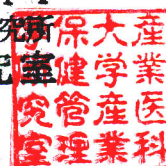 産業医科
大学産業
保健管理
学研究室